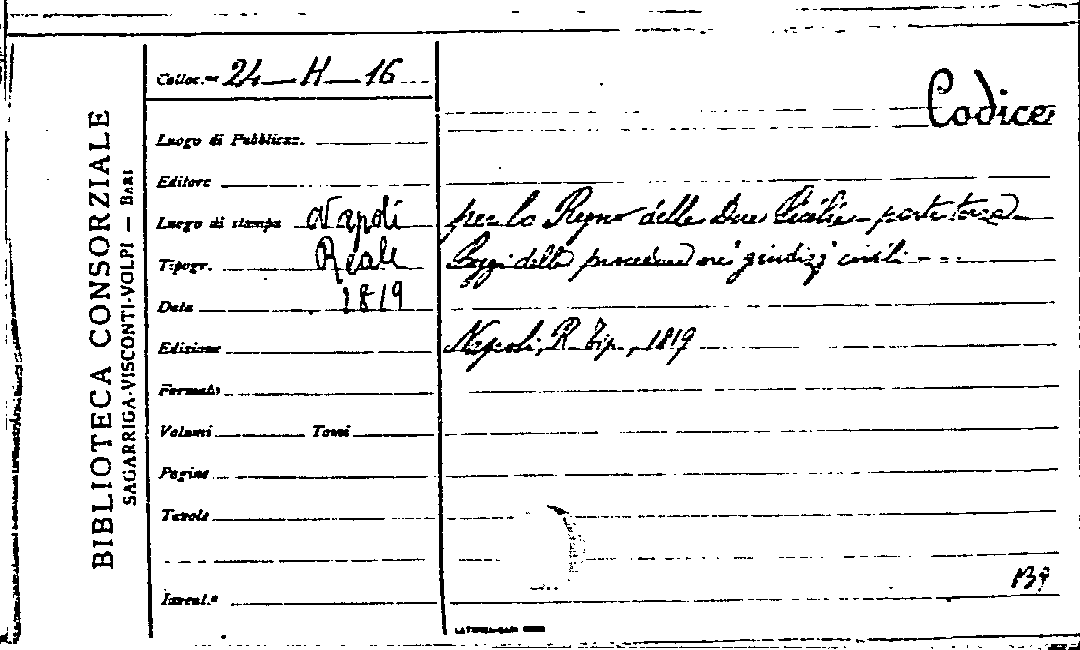 BIBLIOTECA CONSORZIALE
SAGARRIGA-VISCONTI-VOLPI — BARI
Colloc.ne 24 — H — 16
Luogo di Pubblicaz.
Editore
Luogo di stampa Napoli
Tipogr. Reale
Data 1819
Edizione
Formato
Volumi Tomi
Pagine
Tavole
Invent.°
Codice
per lo Regno delle Due Sicilie - parte terza -
Leggi della procedura ne' giudizj civili - - -
Napoli, R. Tip., 1819